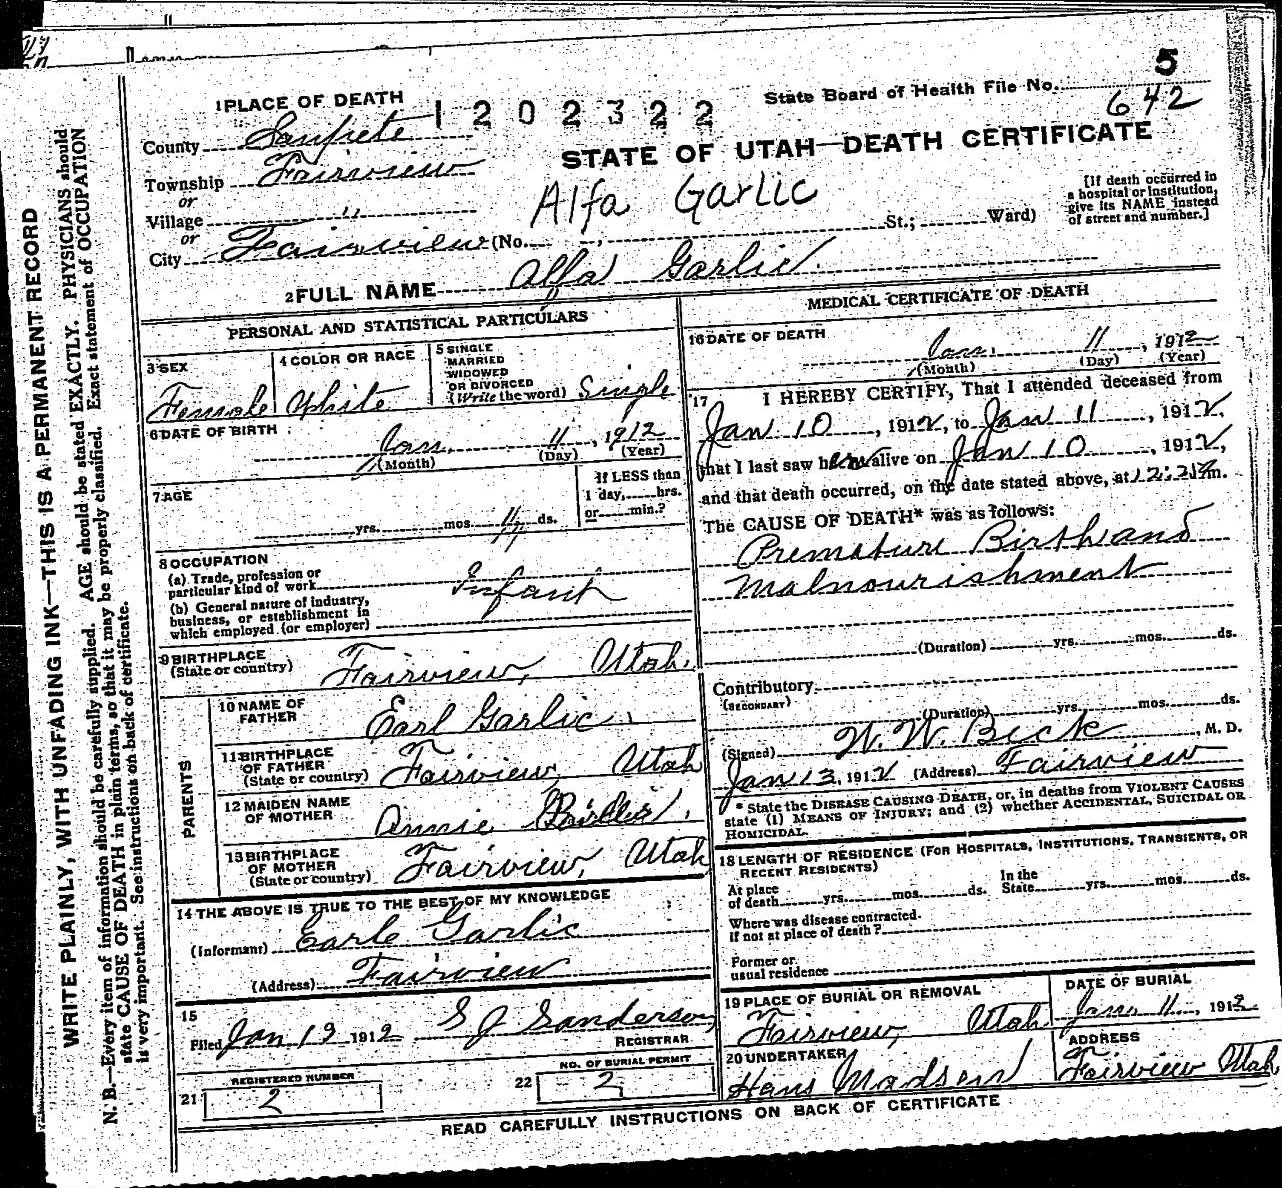 5
State Board of Health File No. 642
1 PLACE OF DEATH
1202322
County Sanpete
STATE OF UTAH—DEATH CERTIFICATE
Township Fairview
or
Village "
or
City Fairview (No. St.; Ward)
Alfa Garlic
[If death occurred in a hospital or institution, give its NAME instead of street and number.]
2 FULL NAME Alfa Garlic
PERSONAL AND STATISTICAL PARTICULARS
3 SEX
Female
4 COLOR OR RACE
White
5 SINGLE
MARRIED
WIDOWED
OR DIVORCED
(Write the word) Single
6 DATE OF BIRTH
Jan. 11, 1912
(Month) (Day) (Year)
7 AGE
yrs. mos. 11 ds.
If LESS than
1 day, hrs.
or min.?
8 OCCUPATION
(a) Trade, profession or
particular kind of work
Infant
(b) General nature of industry,
business, or establishment in
which employed (or employer)
9 BIRTHPLACE
(State or country) Fairview, Utah.
PARENTS
10 NAME OF
FATHER Earl Garlic.
11 BIRTHPLACE
OF FATHER
(State or country) Fairview, Utah
12 MAIDEN NAME
OF MOTHER Annie
13 BIRTHPLACE
OF MOTHER
(State or country) Fairview, Utah
14 THE ABOVE IS TRUE TO THE BEST OF MY KNOWLEDGE
(Informant) Earle Garlic
(Address) Fairview
15
Filed Jan 13 1912 S J Sanderson
REGISTRAR
REGISTERED NUMBER
21 2
NO. OF BURIAL PERMIT
22 2
MEDICAL CERTIFICATE OF DEATH
16 DATE OF DEATH
Jan. 11, 1912
(Month) (Day) (Year)
17 I HEREBY CERTIFY, That I attended deceased from
Jan 10, 1912, to Jan 11, 1912,
that I last saw her alive on Jan 10, 1912,
and that death occurred, on the date stated above, at m.
The CAUSE OF DEATH* was as follows:
Premature Birth and
Malnourishment
(Duration) yrs. mos. ds.
Contributory
(SECONDARY)
(Duration) yrs. mos. ds.
(Signed) W. W. Beck, M. D.
Jan 13, 1912 (Address) Fairview
* State the DISEASE CAUSING DEATH, or, in deaths from VIOLENT CAUSES
state (1) MEANS OF INJURY; and (2) whether ACCIDENTAL, SUICIDAL OR
HOMICIDAL.
18 LENGTH OF RESIDENCE (FOR HOSPITALS, INSTITUTIONS, TRANSIENTS, OR
RECENT RESIDENTS)
At place
of death yrs. mos. ds.
In the
State yrs. mos. ds.
Where was disease contracted.
if not at place of death?
Former or
usual residence
19 PLACE OF BURIAL OR REMOVAL
Fairview, Utah
DATE OF BURIAL
Jan. 11, 1912
20 UNDERTAKER
Hans Madsen
ADDRESS
Fairview Utah
READ CAREFULLY INSTRUCTIONS ON BACK OF CERTIFICATE
WRITE PLAINLY, WITH UNFADING INK—THIS IS A PERMANENT RECORD
N. B.—Every item of information should be carefully supplied. AGE should be stated EXACTLY. PHYSICIANS should
state CAUSE OF DEATH in plain terms, so that it may be properly classified. Exact statement of OCCUPATION
is very important. See instructions on back of certificate.